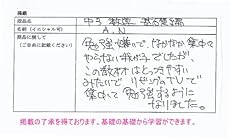 掲載
商品名 中3 数学 基礎篇
名前(イニシャル可) A.N
商品に関して
(ご自由に記載ください)
勉強嫌いで、なかなか集中して
やらない我が子でしたが、
この教材はとっつきやすい
みたいで、リピックスTVして
集中して勉強するように
なりました。
掲載の了承を得ております。基礎の基礎から学習ができます。